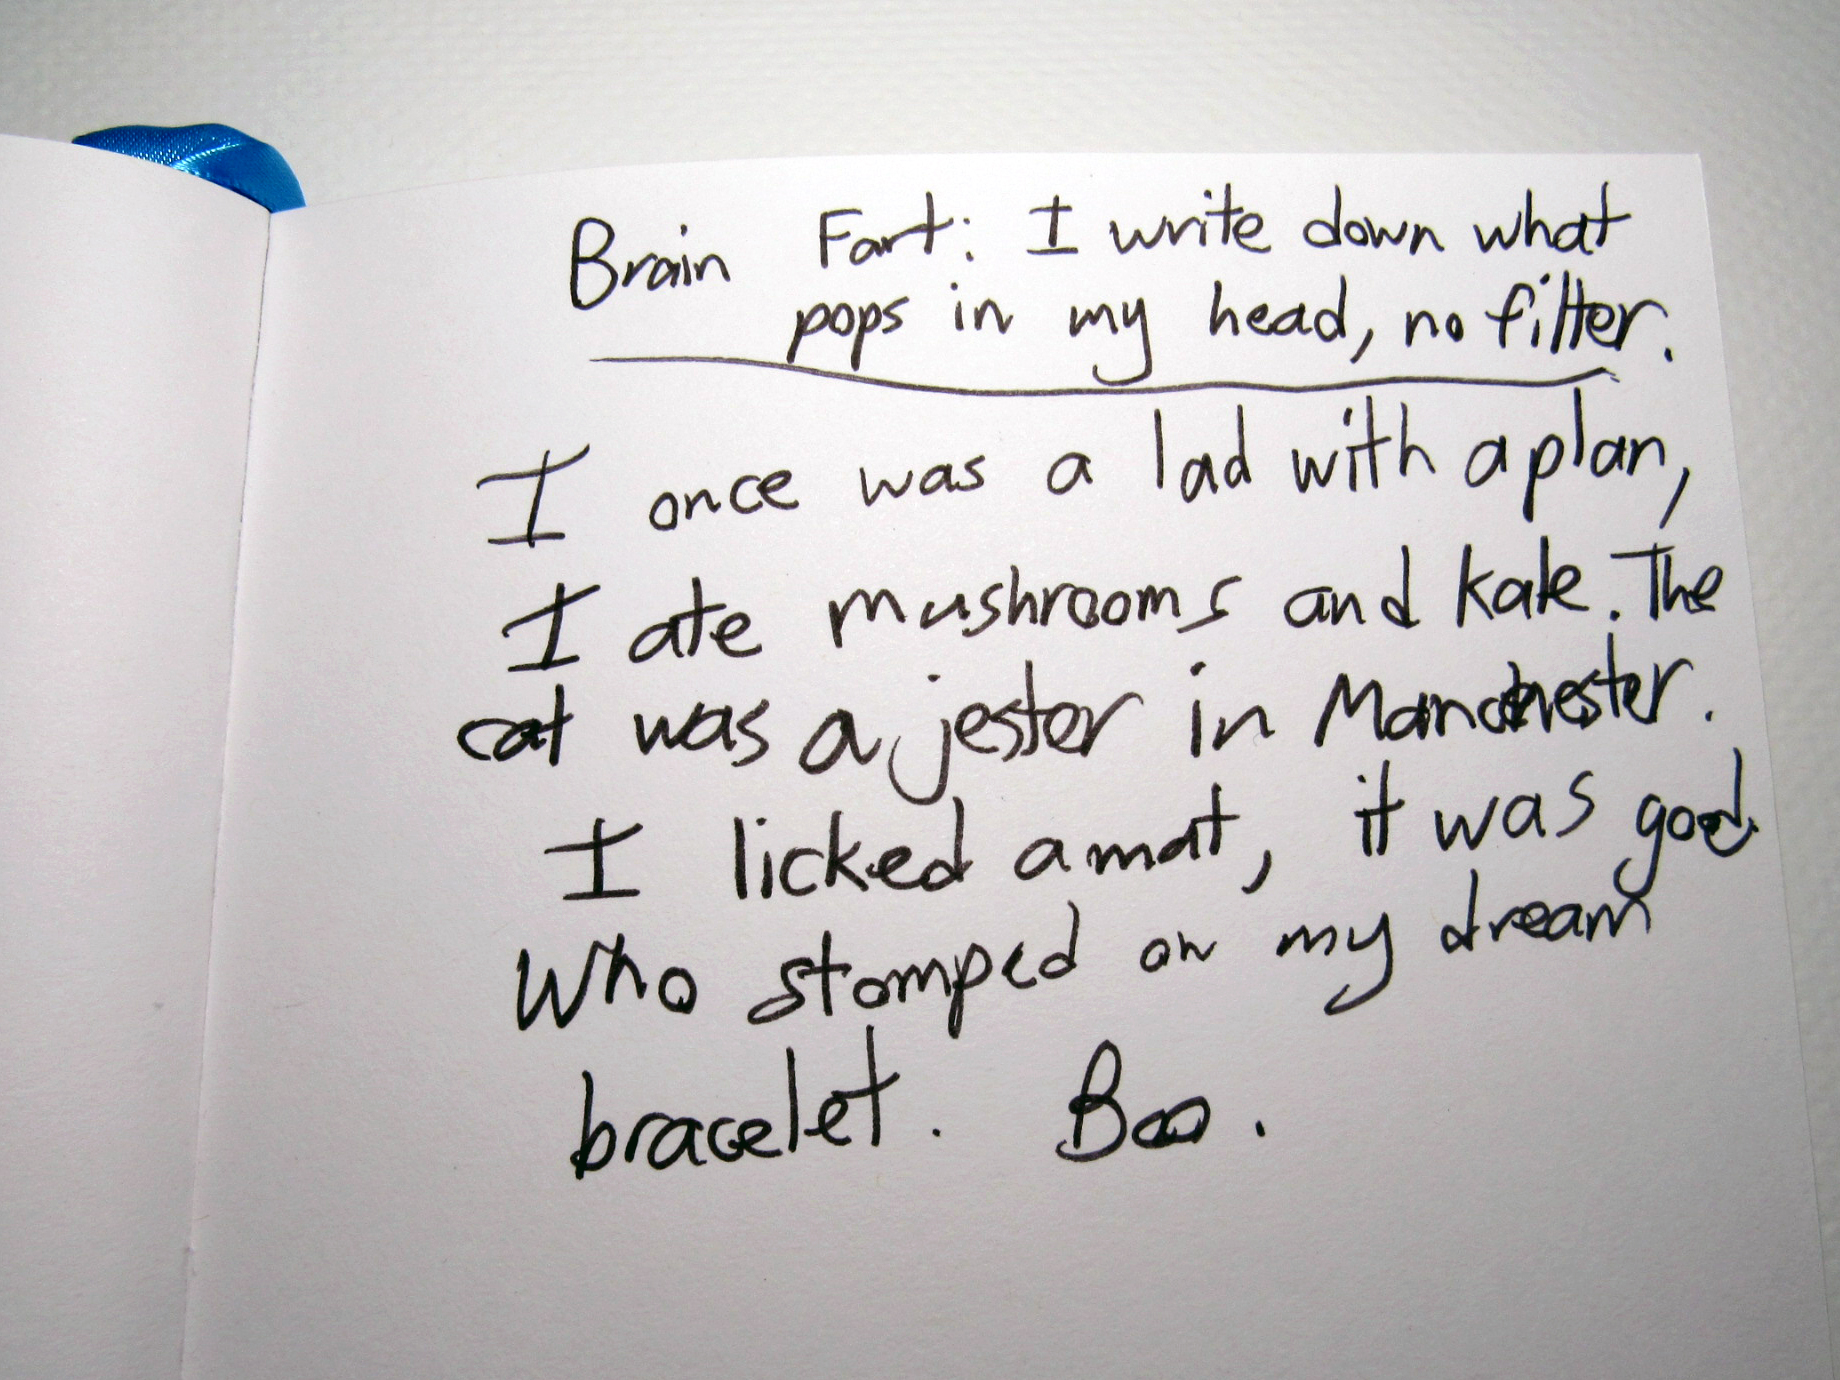 Brain Fart: I write down what
pops in my head, no filter.
I once was a lad with a plan,
I ate mushrooms and kale. The
cat was a jester in Manchester.
I licked a mat, it was good.
Who stomped on my dream
bracelet. Boo.